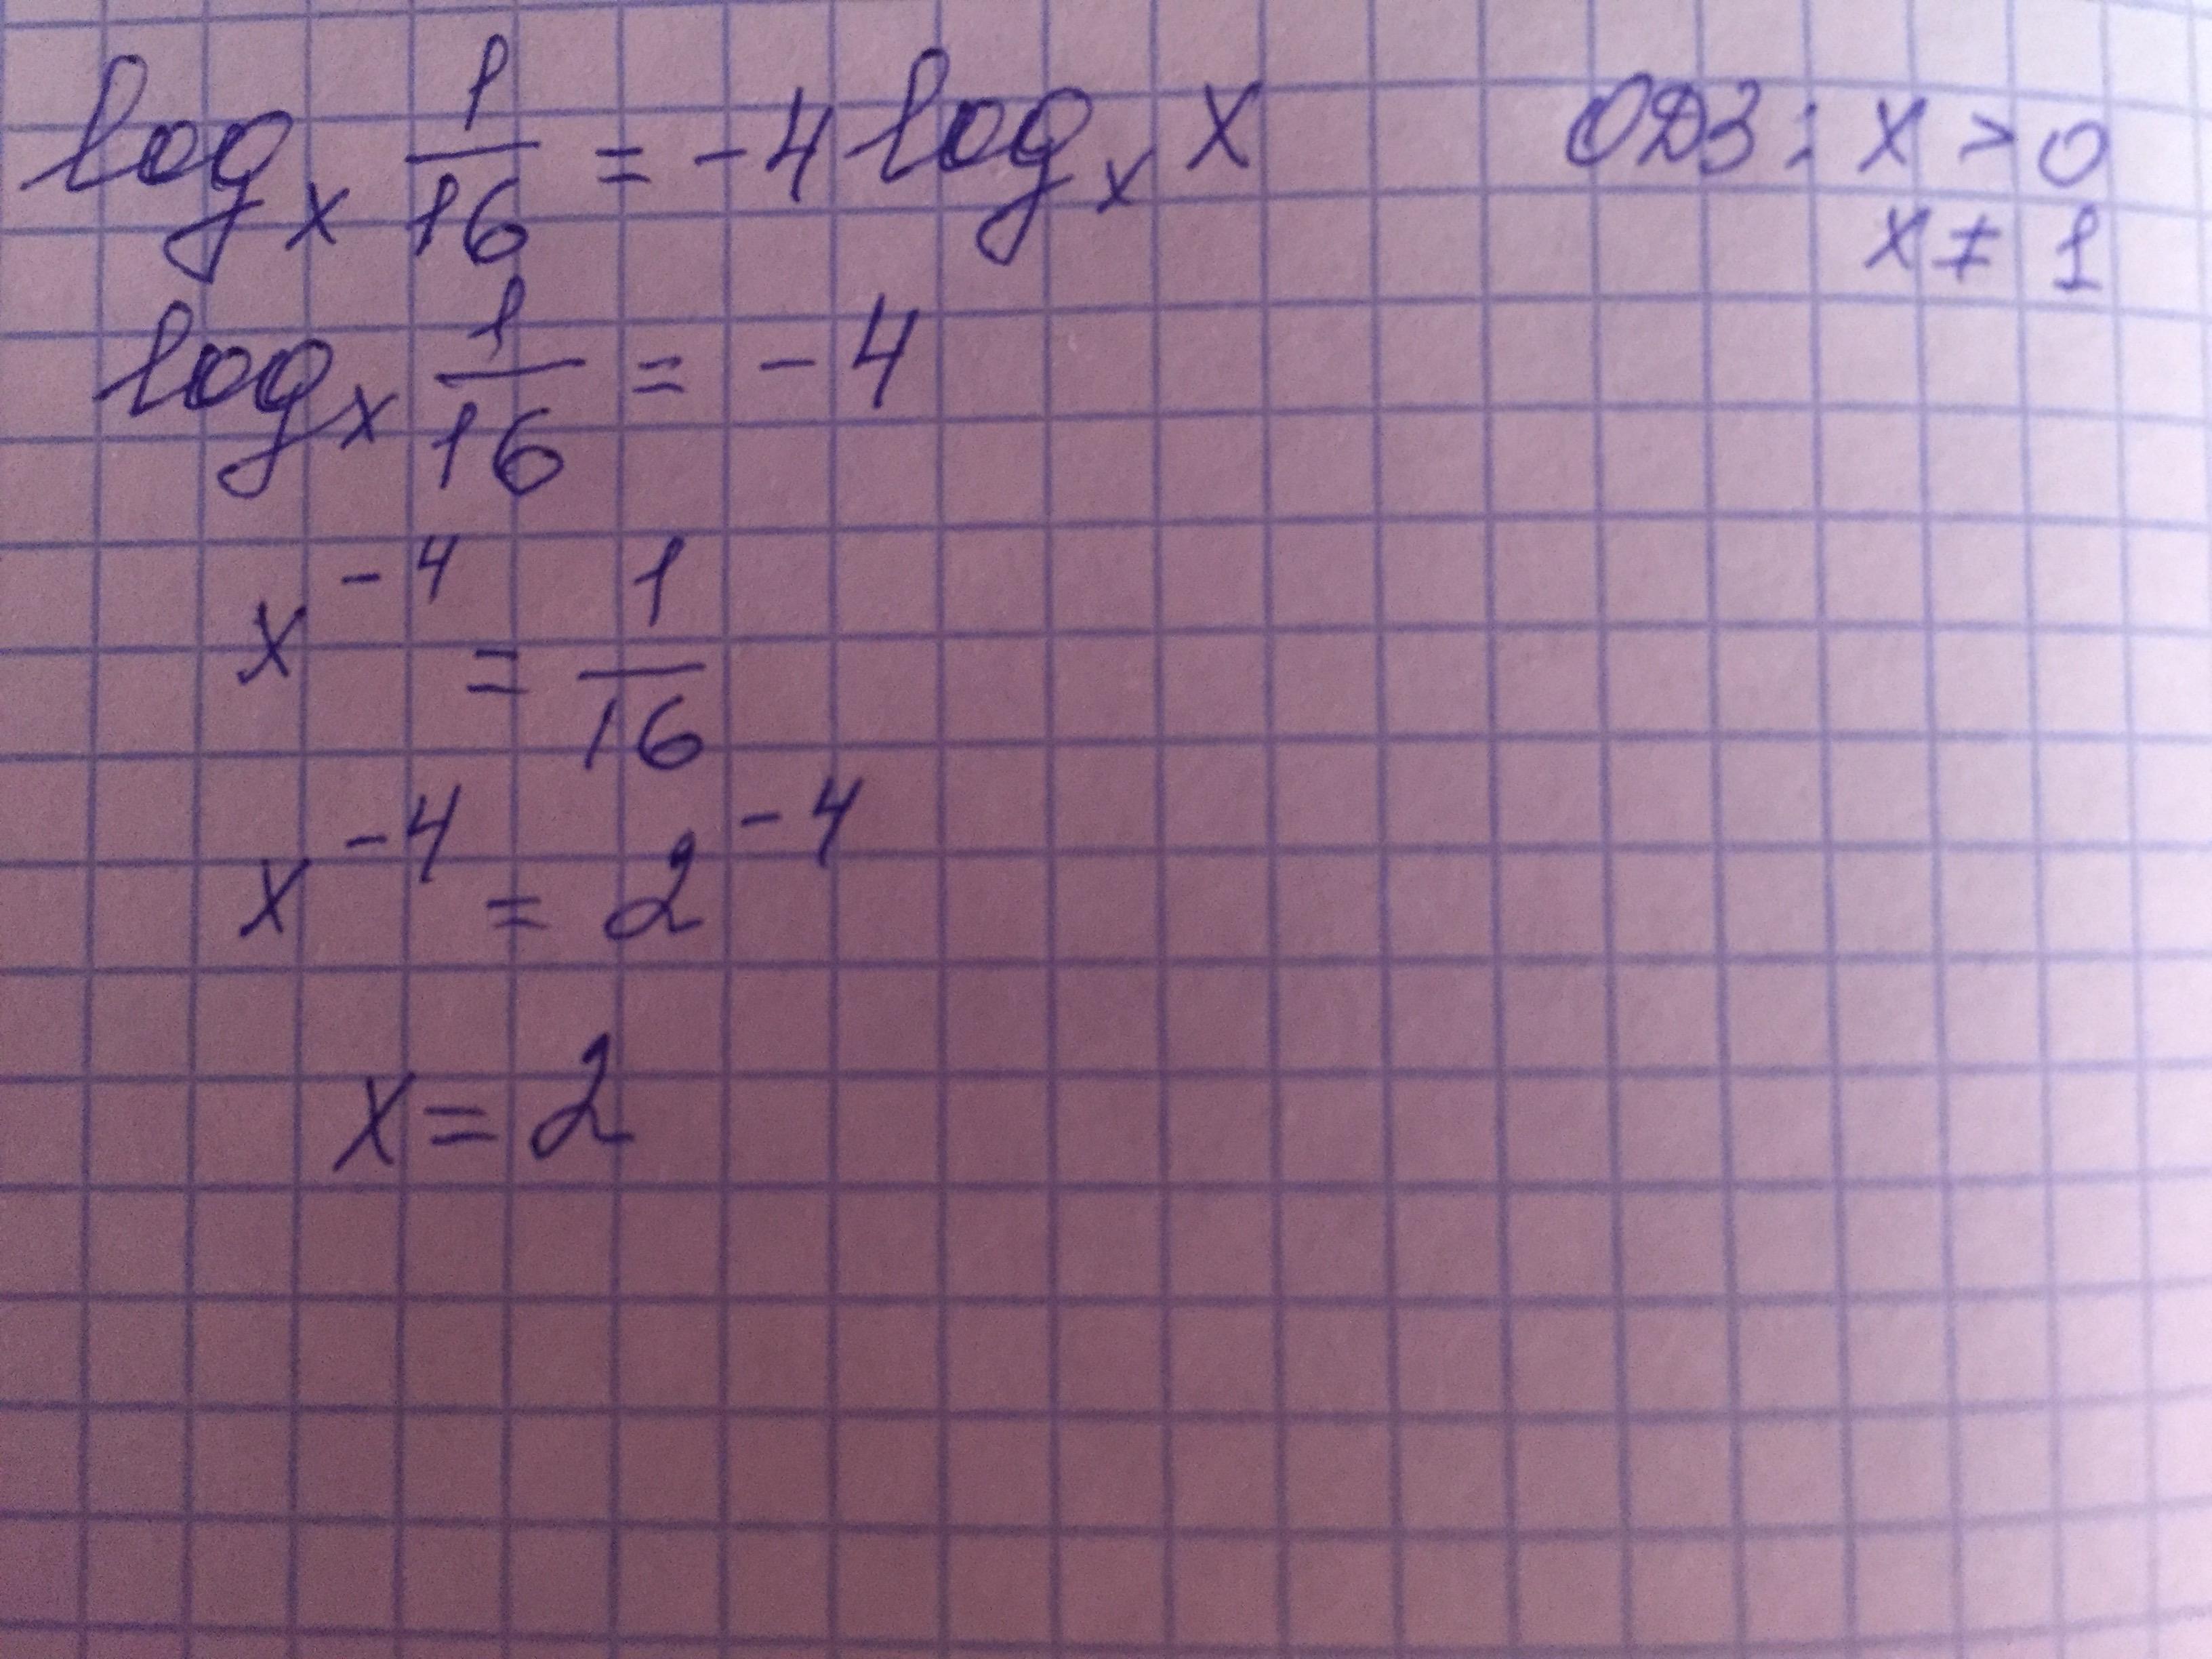 log_x 1/16 = -4 log_x x
ОДЗ: x > 0
x ≠ 1
log_x 1/16 = -4
x^-4 = 1/16
x^-4 = 2^-4
x = 2